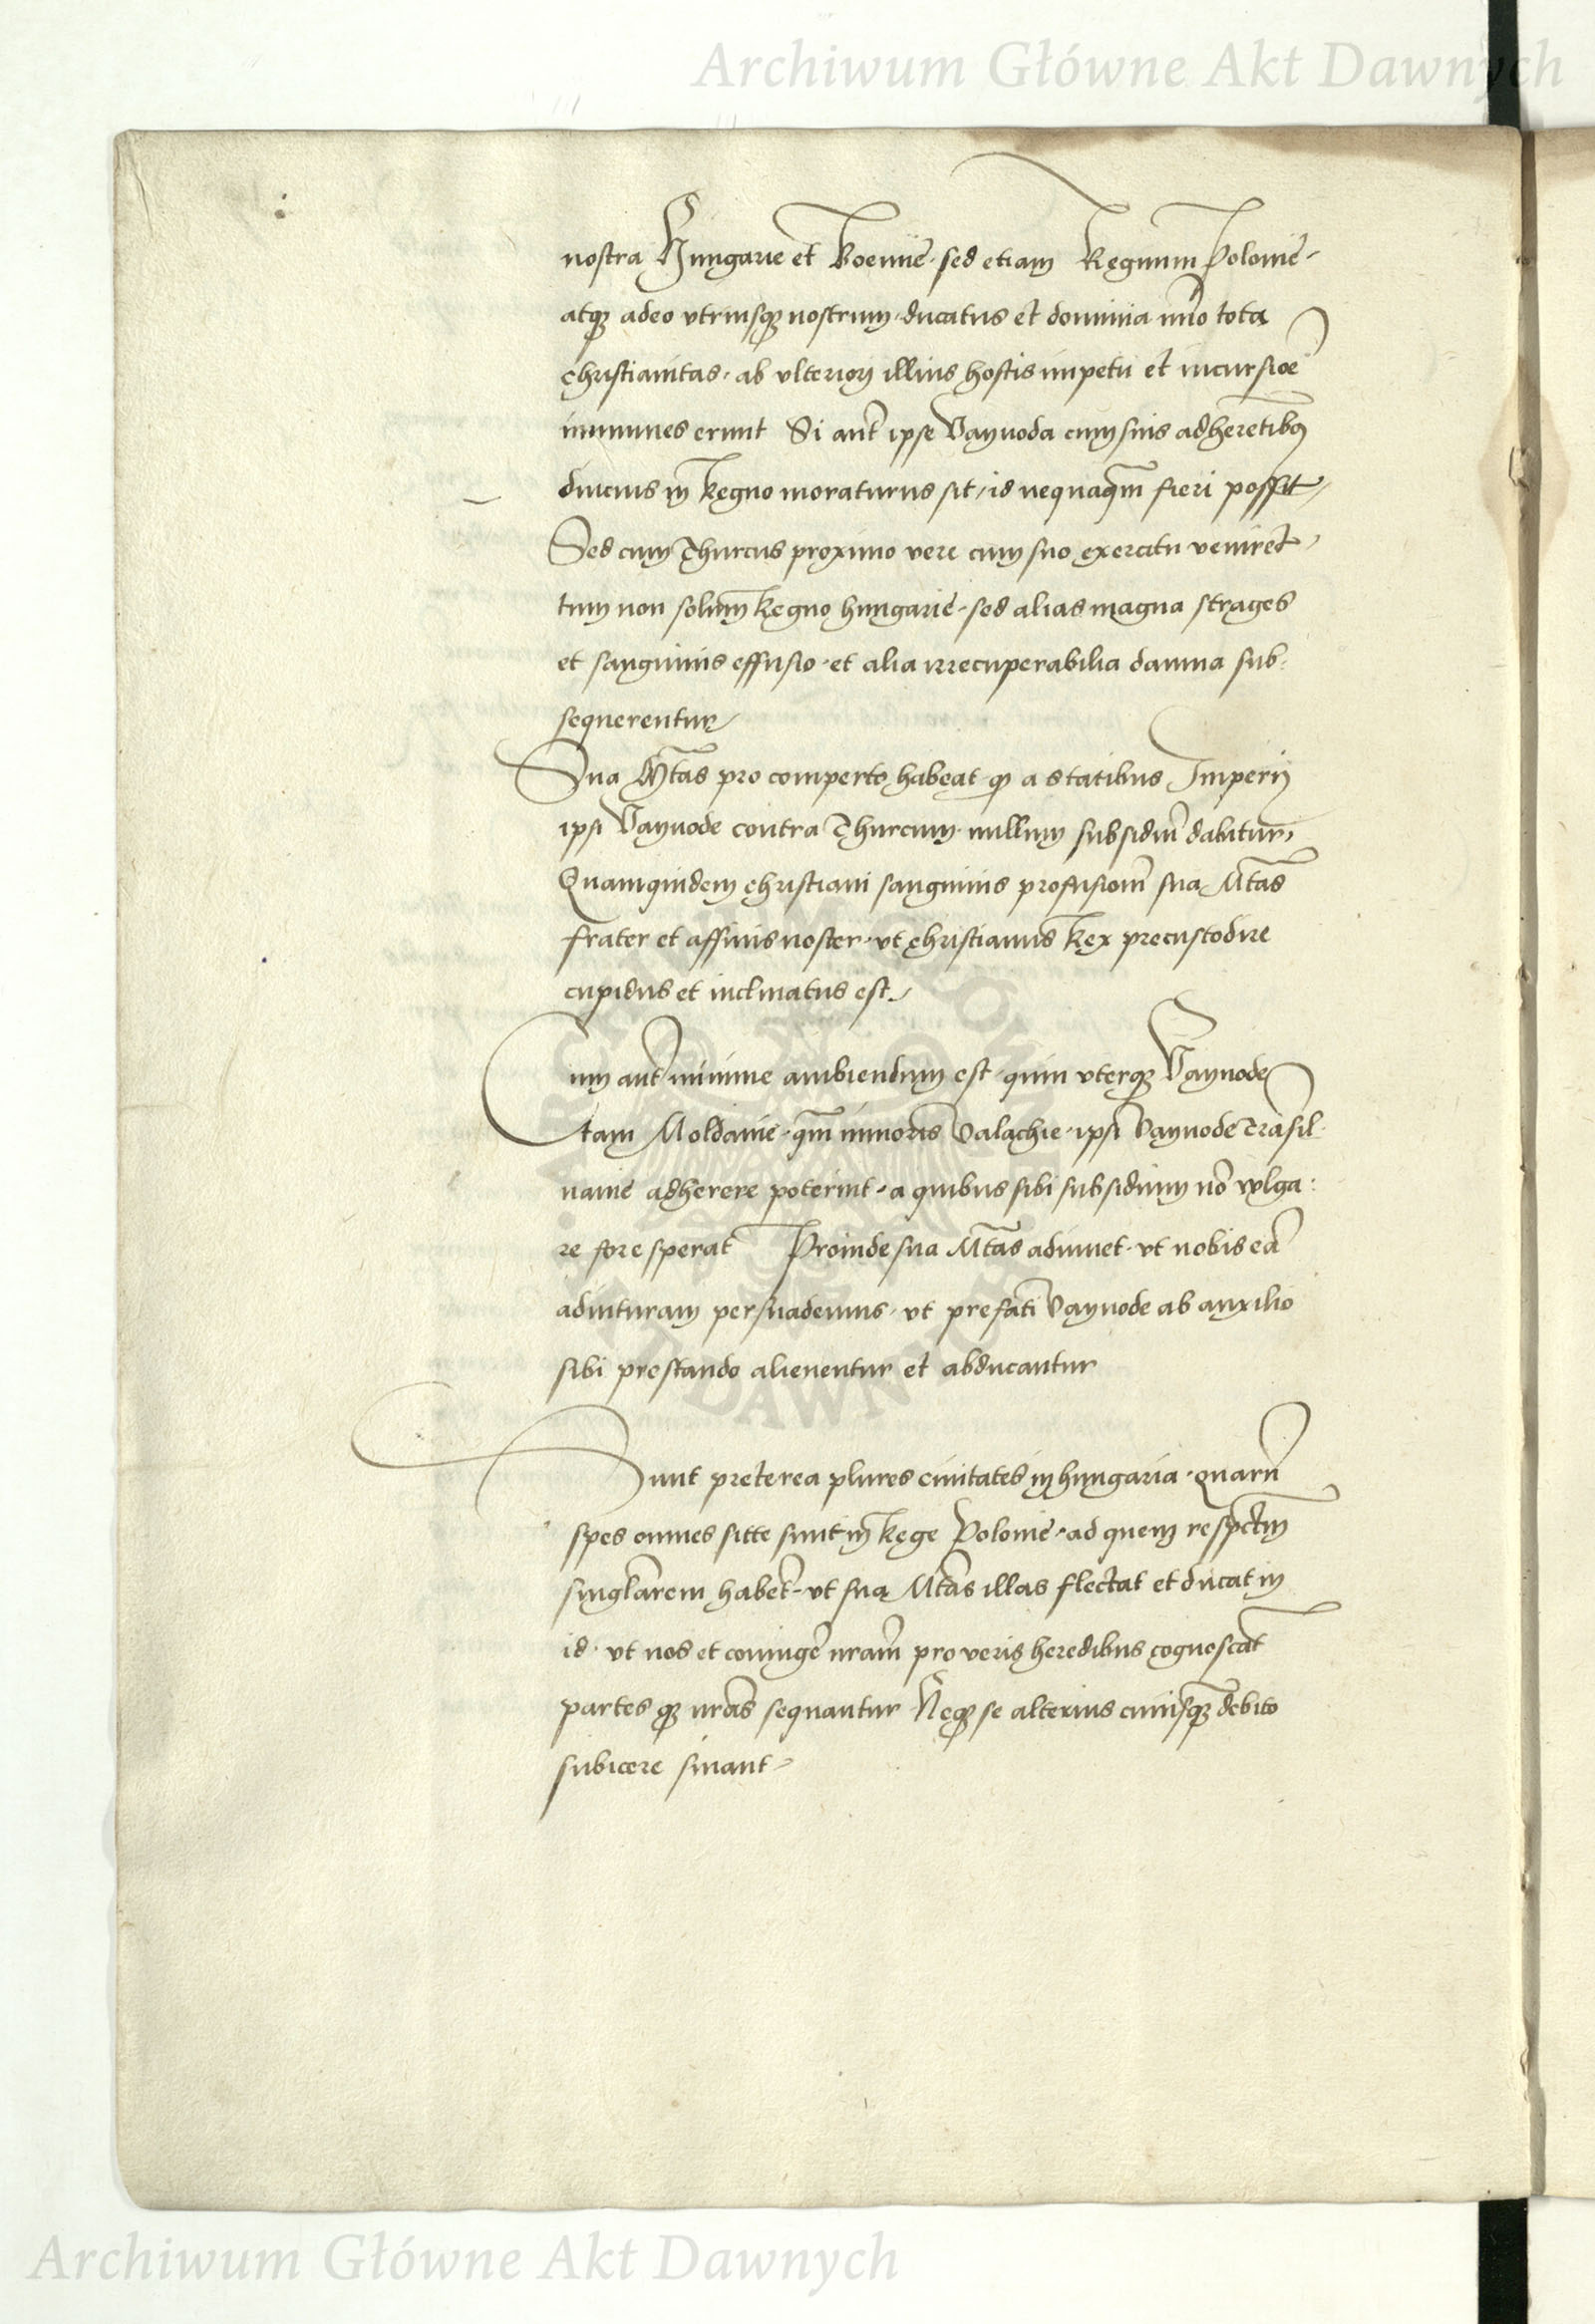 Archiwum Główne Akt Dawnych
nostra Hungarie et Boemie · sed etiam Regnum Polonie ·
atq3 adeo vtriusq3 nostrum · ducatus et dominia im̄o tota
christianitas · ab vlteriori illius hostis impetu et incursioē
immunes erunt Si aūt ipse Vayuoda cum suis adherētib9
diucius in Regno moraturus sit / id nequaq̄m fieri possit /
Sed cum Thurcus proximo vere cum suo exercitu veniret /
tum non solum Regno hungarie · sed alias magna strages
et sanguinis effusio · et alia irrecuperabilia damna sub:
sequerentur /
Sua M̄tas pro comperto habeat q3 a statibus Imperij
ipsi Vayuode contra Thurcum · nullum subsidiū dabitur,
Quamquidem christiani sanguinis profusionē sua M̄tas
frater et affinis noster · vt christianus Rex precustodire
cupidus et inclinatus est /
Cum aūt minime ambiendum est · quin vterq3 Vayuode
tam Moldauie · q̄m minoris Valachie · ipsi Vayuode Trāsil:
uanie adherere poterint · a quibus sibi subsidium nō vulga:
re fore sperat Proinde sua M̄tas adiuuet · vt nobis eā
adiuturam persuademus · vt prefati Vayuode ab auxilio
sibi prestando alienentur et abducantur
Sunt preterea plures ciuitates in hungaria · quarū
spes omnes sitte sunt in Rege Polonie · ad quem respctum
singlārem habēt · vt sua M̄tas illas flectat et ducat in
id · vt nos et coniugē nrām pro veris heredibus cognoscāt
partes q3 nrās sequantur Neq3 se alterius cuiusq3 debito
subicere sinant /
Archiwum Główne Akt Dawnych